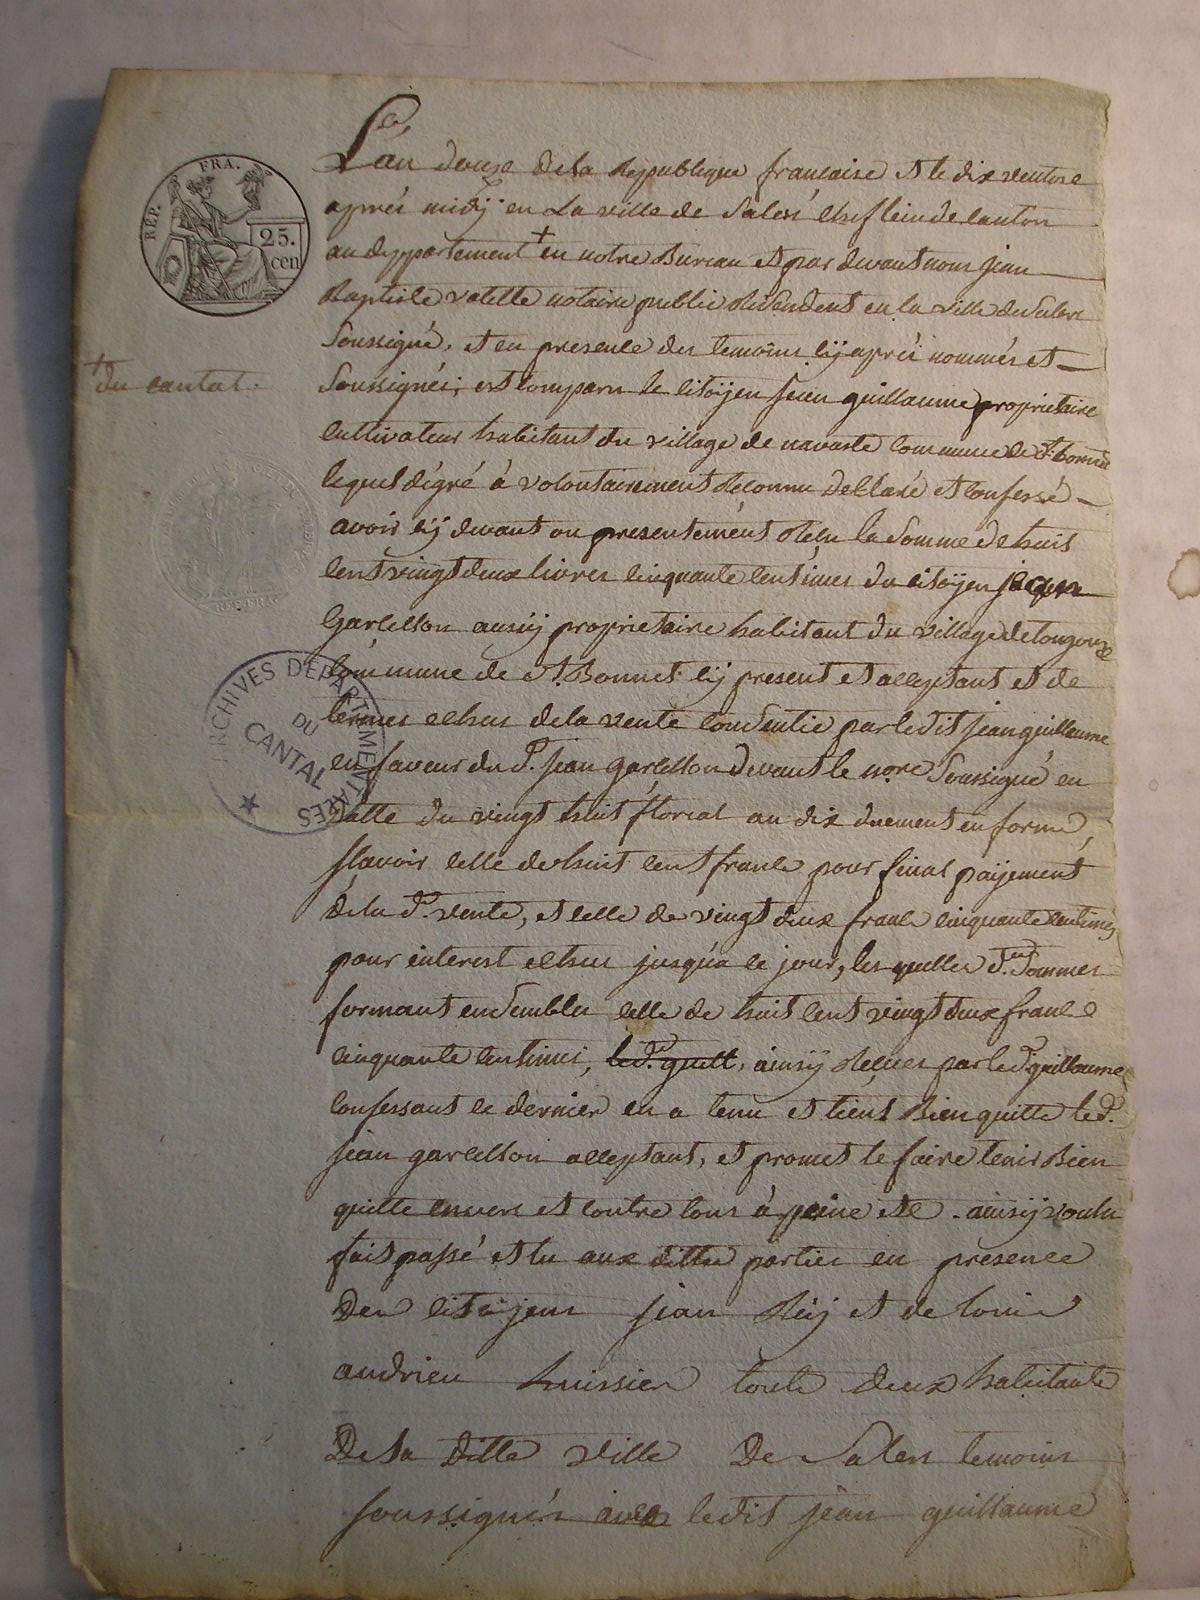 REP. FRA.
25.
cen
L'an douze de la Republique francaise et le dix ventose
aprés midÿ en La ville de Salers chef lieu de canton
au deppartement + en notre Bureau et par devant nous jean
Baptiste valette notaire public Residendent en la ville de Salers
Soussigné, et en presence des temoins cÿ aprés nommés et
+ du cantal.
Soussignés; est comparu le citoÿen jean guillaume proprietaire
cultivateur habitant du village de navaste commune de St. bonnet
lequel dégré à volontairement Reconnu declaré et confessé
avoir cÿ devant ou presentement Recu la Somme de huit
cent vingt deux livres cinquante centimes du citoÿen jean
Garcelson aussÿ proprietaire habitant du village de
Commune de St. Bonnet cÿ present et acceptant et de
termes echus de la vente consentie par ledit jean guillaume
en faveur du d. jean garcelson devant le nore Soussigné en
datte du vingt huit floreal an dix duement en forme,
Scavoir celle de huit cent franc pour final paÿement
de la de. vente, et celle de vingt deux franc cinquante centimes
pour interest echus jusqu'a ce jour, les quelles des. Sommes
formant enSembles celle de huit cent vingt deux franc
cinquante centimes, le d. guill, ainsÿ Recues par le d. guillaume
confessant ce dernier en a tenu et tient Bien quitte le d.
jean garcelson acceptant, et promet le faire tenir Bien
quitte envers et contre tous à peine etc. ainsÿ voulu
fait passé et lu aux dittes parties en presence
Des citoÿens jean Reÿ et de louis
andrieu huissier touts deux habitants
De la ditte ville De Salers temoins
soussignés avec ledit jean guillaume
ARCHIVES DEPARTEMENTALES
DU
CANTAL
REP. FRA.